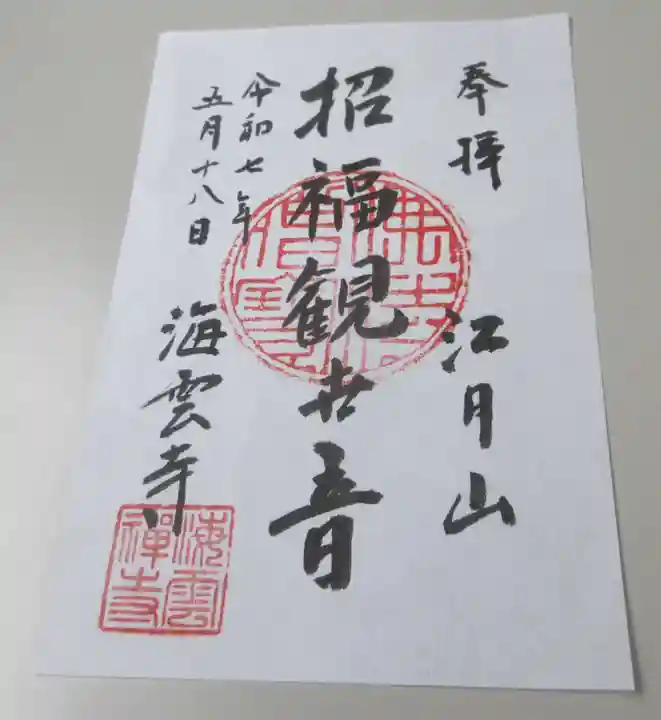 奉拝
江月山
招福観世音
令和七年
五月十八日
海雲寺
佛法僧寳
海雲禅寺